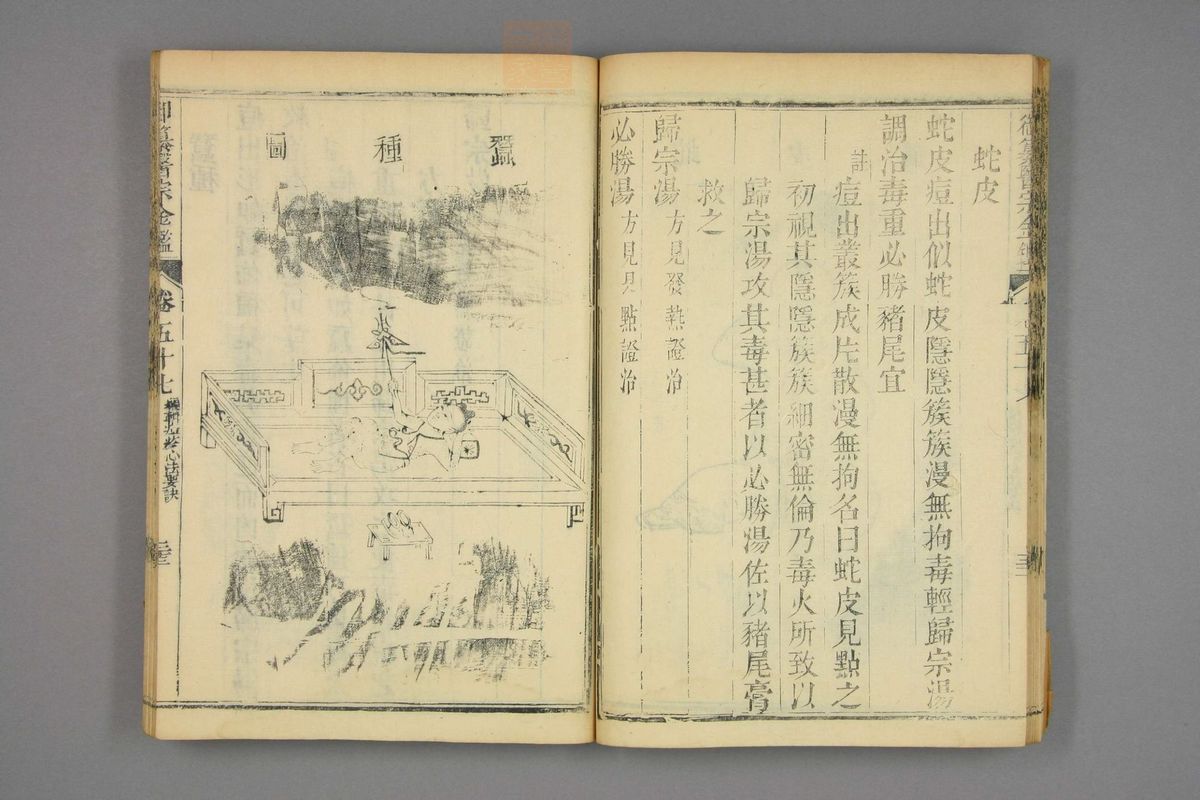 蛇皮
蛇皮痘出似蛇皮隱隱簇簇漫無拘毒輕歸宗湯
調治毒重必勝豬尾宜
註痘出叢簇成片散漫無拘名曰蛇皮見點之
初視其隱隱簇簇細密無倫乃毒火所致以
歸宗湯攻其毒甚者以必勝湯佐以豬尾膏
救之
歸宗湯方見發熱證治
必勝湯方見見點證治
蠶種圖
御纂醫宗金鑑
卷五十七
心法要訣